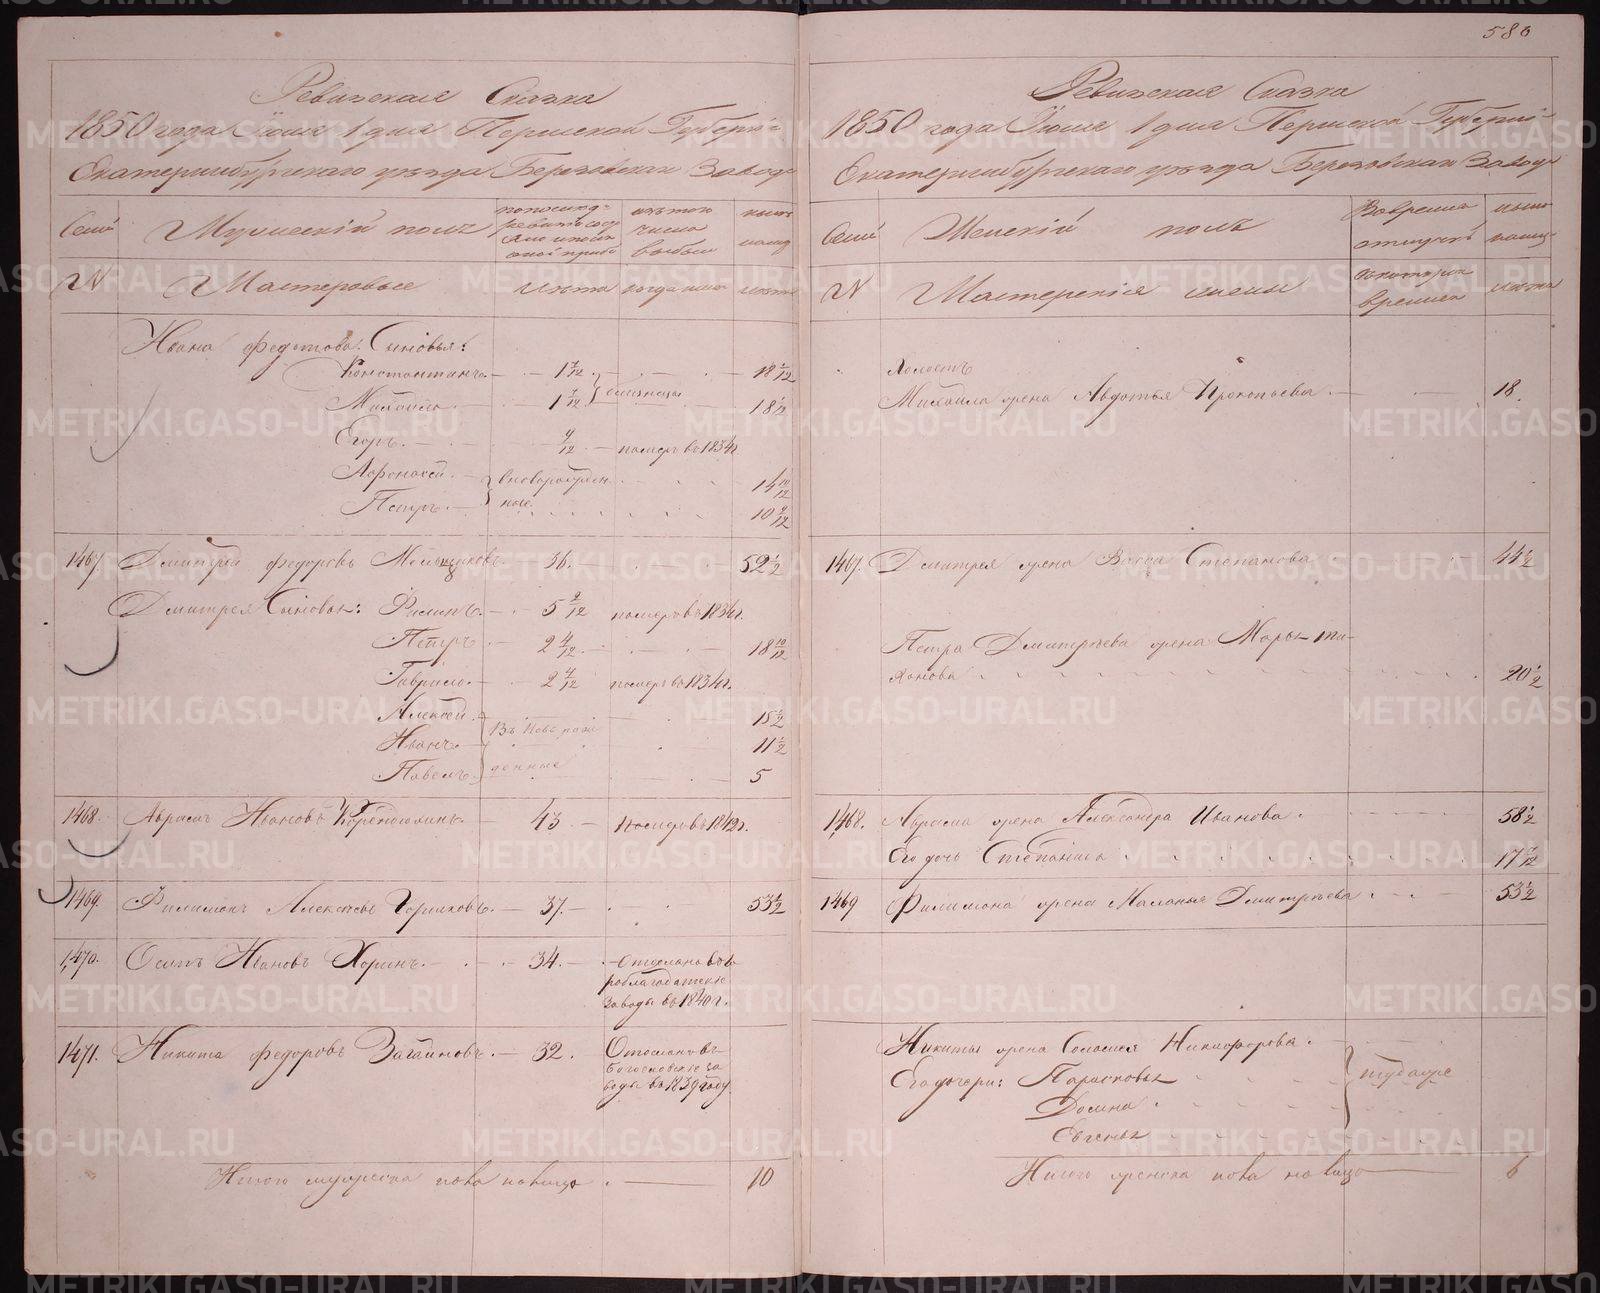 580
Ревизская Сказка
1850 года Июня 1 дня Пермской Губерніи
Екатеринбургскаго уезда Березовскаго Завода
Семьи Мужескій полъ по последней ревизіи состояло и после оной прибыло изъ того числа выбыло ныне на лицо
№ Мастеровые лета когда именно лета
Ивана Федотова Сыновья:
Константинъ 1 7/12
Михайло 1 7/12 близнецы
Егоръ 4/12 померъ въ 1834 г.
Афонасей новорожден 14 10/12
Петръ ные 10 9/12
1467. Дмитрій Федоровъ 36. 52 1/2
Дмитрея Сыновья: Филипъ 5 2/12 померъ въ 1834 г.
Петръ 2 4/12 18 10/12
Гаврило 2 4/12 померъ въ 1834 г.
Алексей 15 1/2
Иванъ 11 1/2
Павелъ 5
денные
1468. Абрамъ Ивановъ 43 померъ въ 1842 г.
1469. Филимонъ Алексеевъ Горшковъ 37. 53 1/2
1470. Осипъ Ивановъ Хоринъ 34. Отосланъ въ Го
роблагодатскіе
Заводы въ 1840 г.
1471. Никита Федоровъ Загайновъ 32. Отосланъ въ
Богословскіе за
воды въ 1839 году
Итого мужеска пола на лицо 10
Ревизская Сказка
1850 года Июня 1 дня Пермской Губерніи
Екатеринбургскаго уезда Березовскаго Завода
Семьи Женскій полъ Во временной отлучке ныне на лицо
№ Мастерскія жены съ котораго времени лета
Холостъ
Михайла жена Авдотья Прокопьева 18.
1467. Дмитрея жена Степанова 44 1/2
Петра Дмитреева жена Марья Ти
хонова 20 1/2
1468. Абрама жена Александра Иванова 58 1/2
Его дочь Степанида 17 7/12
1469 Филимона жена Маланья Дмитреева 53 1/2
Никиты жена Соломея Никифорова
Его дочери: Парасковья тудаже
Домна
Евгенья
Итого женска пола на лицо 6
METRIKI.GASO-URAL.RU